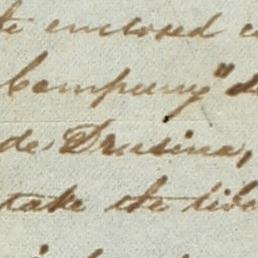 te enclosed c
Company" d
de Drusina,
take the lib